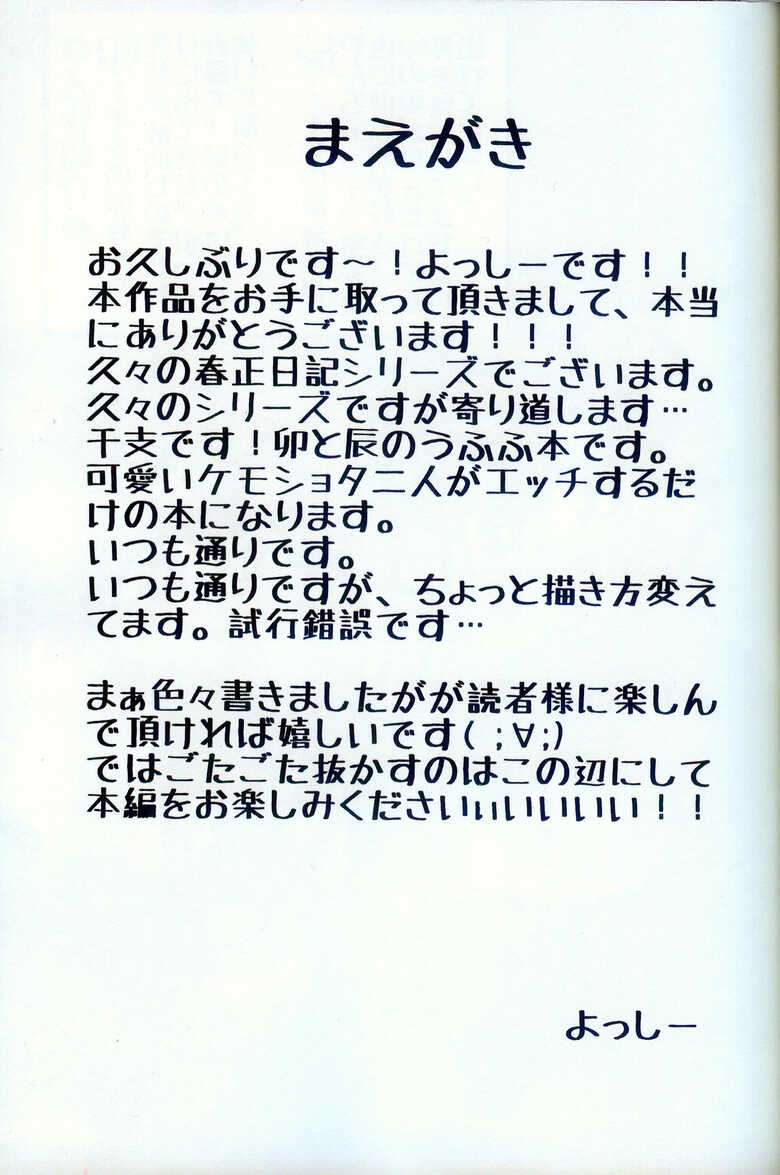 まえがき
お久しぶりです～！よっしーです！！
本作品をお手に取って頂きまして、本当
にありがとうございます！！！
久々の春正日記シリーズでございます。
久々のシリーズですが寄り道します…
干支です！卯と辰のうふふ本です。
可愛いケモショタ二人がエッチするだ
けの本になります。
いつも通りです。
いつも通りですが、ちょっと描き方変え
てます。試行錯誤です…
まぁ色々書きましたがが読者様に楽しん
で頂ければ嬉しいです( ;∀;)
ではごたごた抜かすのはこの辺にして
本編をお楽しみくださいぃぃいいいい！！
よっしー